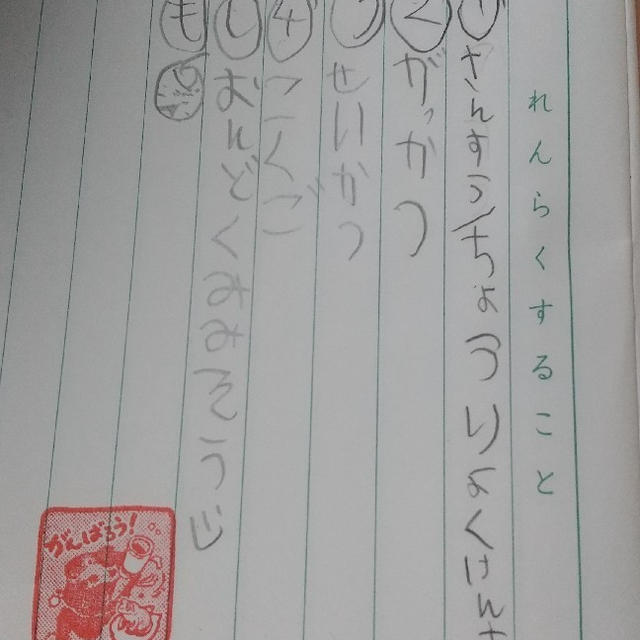 れんらくすること
① さんすう/ちょうりょくけんさ
② がっかつ
③ せいかつ
④ こくご
し おんどく おおぞうじ
も
がんばろう!